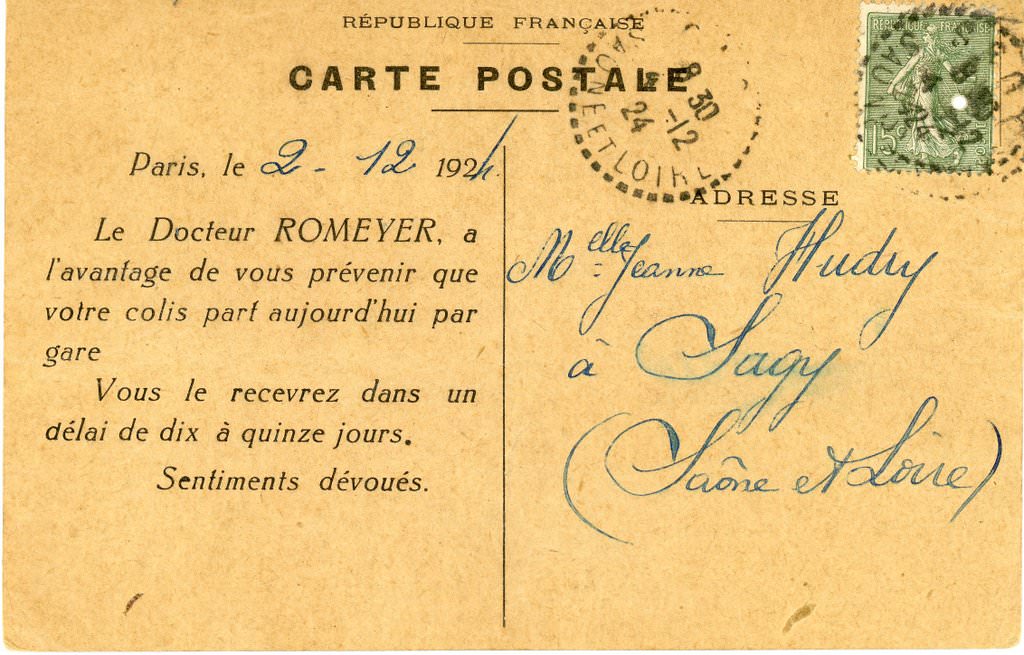 RÉPUBLIQUE FRANÇAISE
CARTE POSTALE
8 30
-12
24
SAONE ET LOIRE
RÉPUBLIQUE FRANÇAISE
15c
Paris, le 2 - 12 1924.
Le Docteur ROMEYER, a
l'avantage de vous prévenir que
votre colis part aujourd'hui par
gare
Vous le recevrez dans un
délai de dix à quinze jours.
Sentiments dévoués.
ADRESSE
Melle Jeanne Hudry
à Sagy
(Saône et Loire)